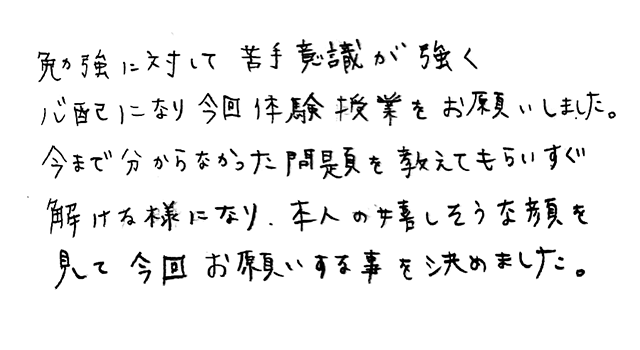 勉強に対して苦手意識が強く
心配になり今回体験授業をお願いしました。
今まで分からなかった問題を教えてもらいすぐ
解ける様になり、本人の嬉しそうな顔を
見て今回お願いする事を決めました。